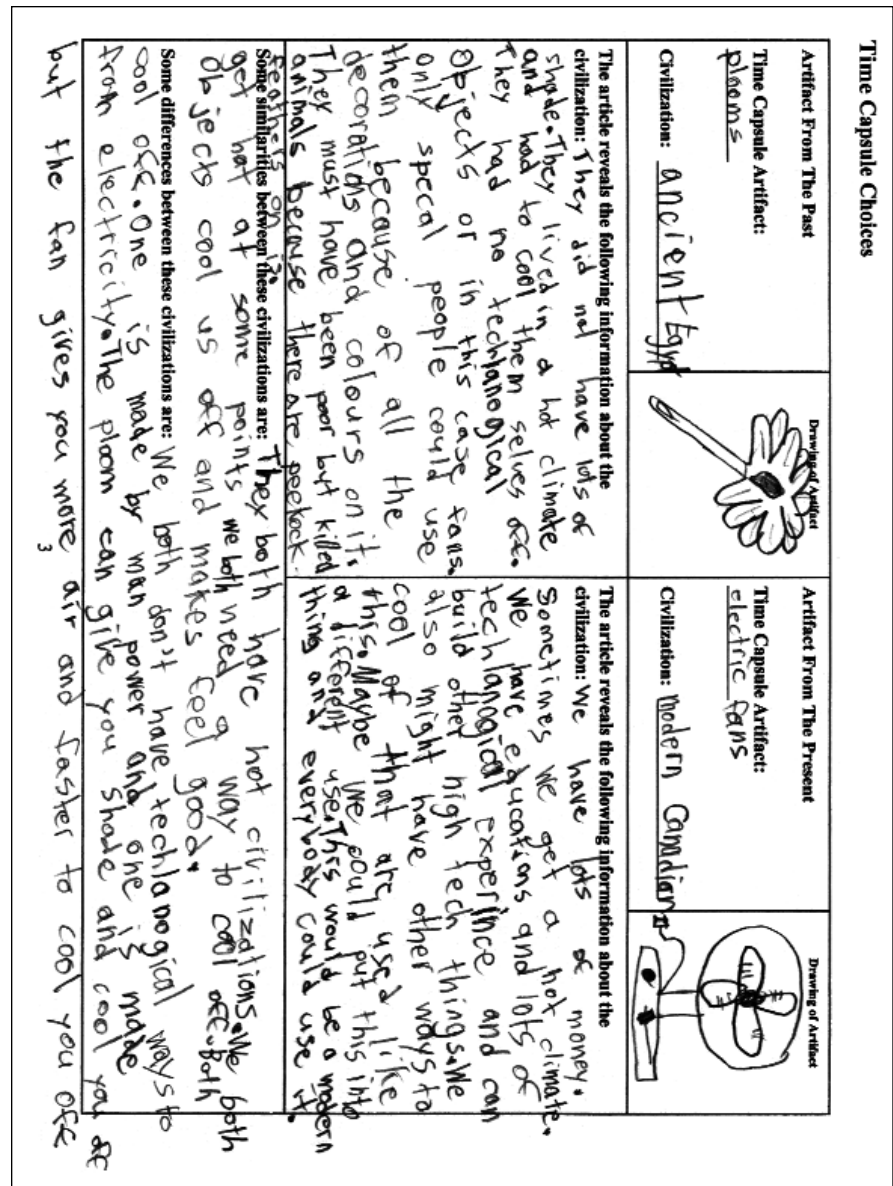 Time Capsule Choices
Artifact From The Past
Time Capsule Artifact:
plooms
Civilization: ancient Egypt
Drawing of Artifact
Artifact From The Present
Time Capsule Artifact:
electric fans
Civilization: modern Canadian
Drawing of Artifact
The article reveals the following information about the
civilization: They did not have lots of
shade. They lived in a hot climate
and had to cool them selves off.
They had no techlanogical
objects or in this case fans.
only specal people could use
them because of all the
decorations and colours on it.
They must have been poor but killed
animals because there are peekock
feathers on it.
The article reveals the following information about the
civilization: We have lots of money.
Sometimes we get a hot climate.
We have educations and lots of
techlanogical experince and can
build other high tech things. We
also might have other ways to
cool of that are used like
this. Maybe we could put this into
a different use. This would be a modern
thing and everybody could use it.
Some similarities between these civilizations are: They both have hot civilizations. We both
get hot at some points we both need a way to cool off. Both
objects cool us off and makes feel good.
Some differences between these civilizations are: We both don't have techlanogical ways to
cool off. One is made by man power and one is made
from electricity. The ploom can give you shade and cool you off
but the fan gives you more air and faster to cool you off
3